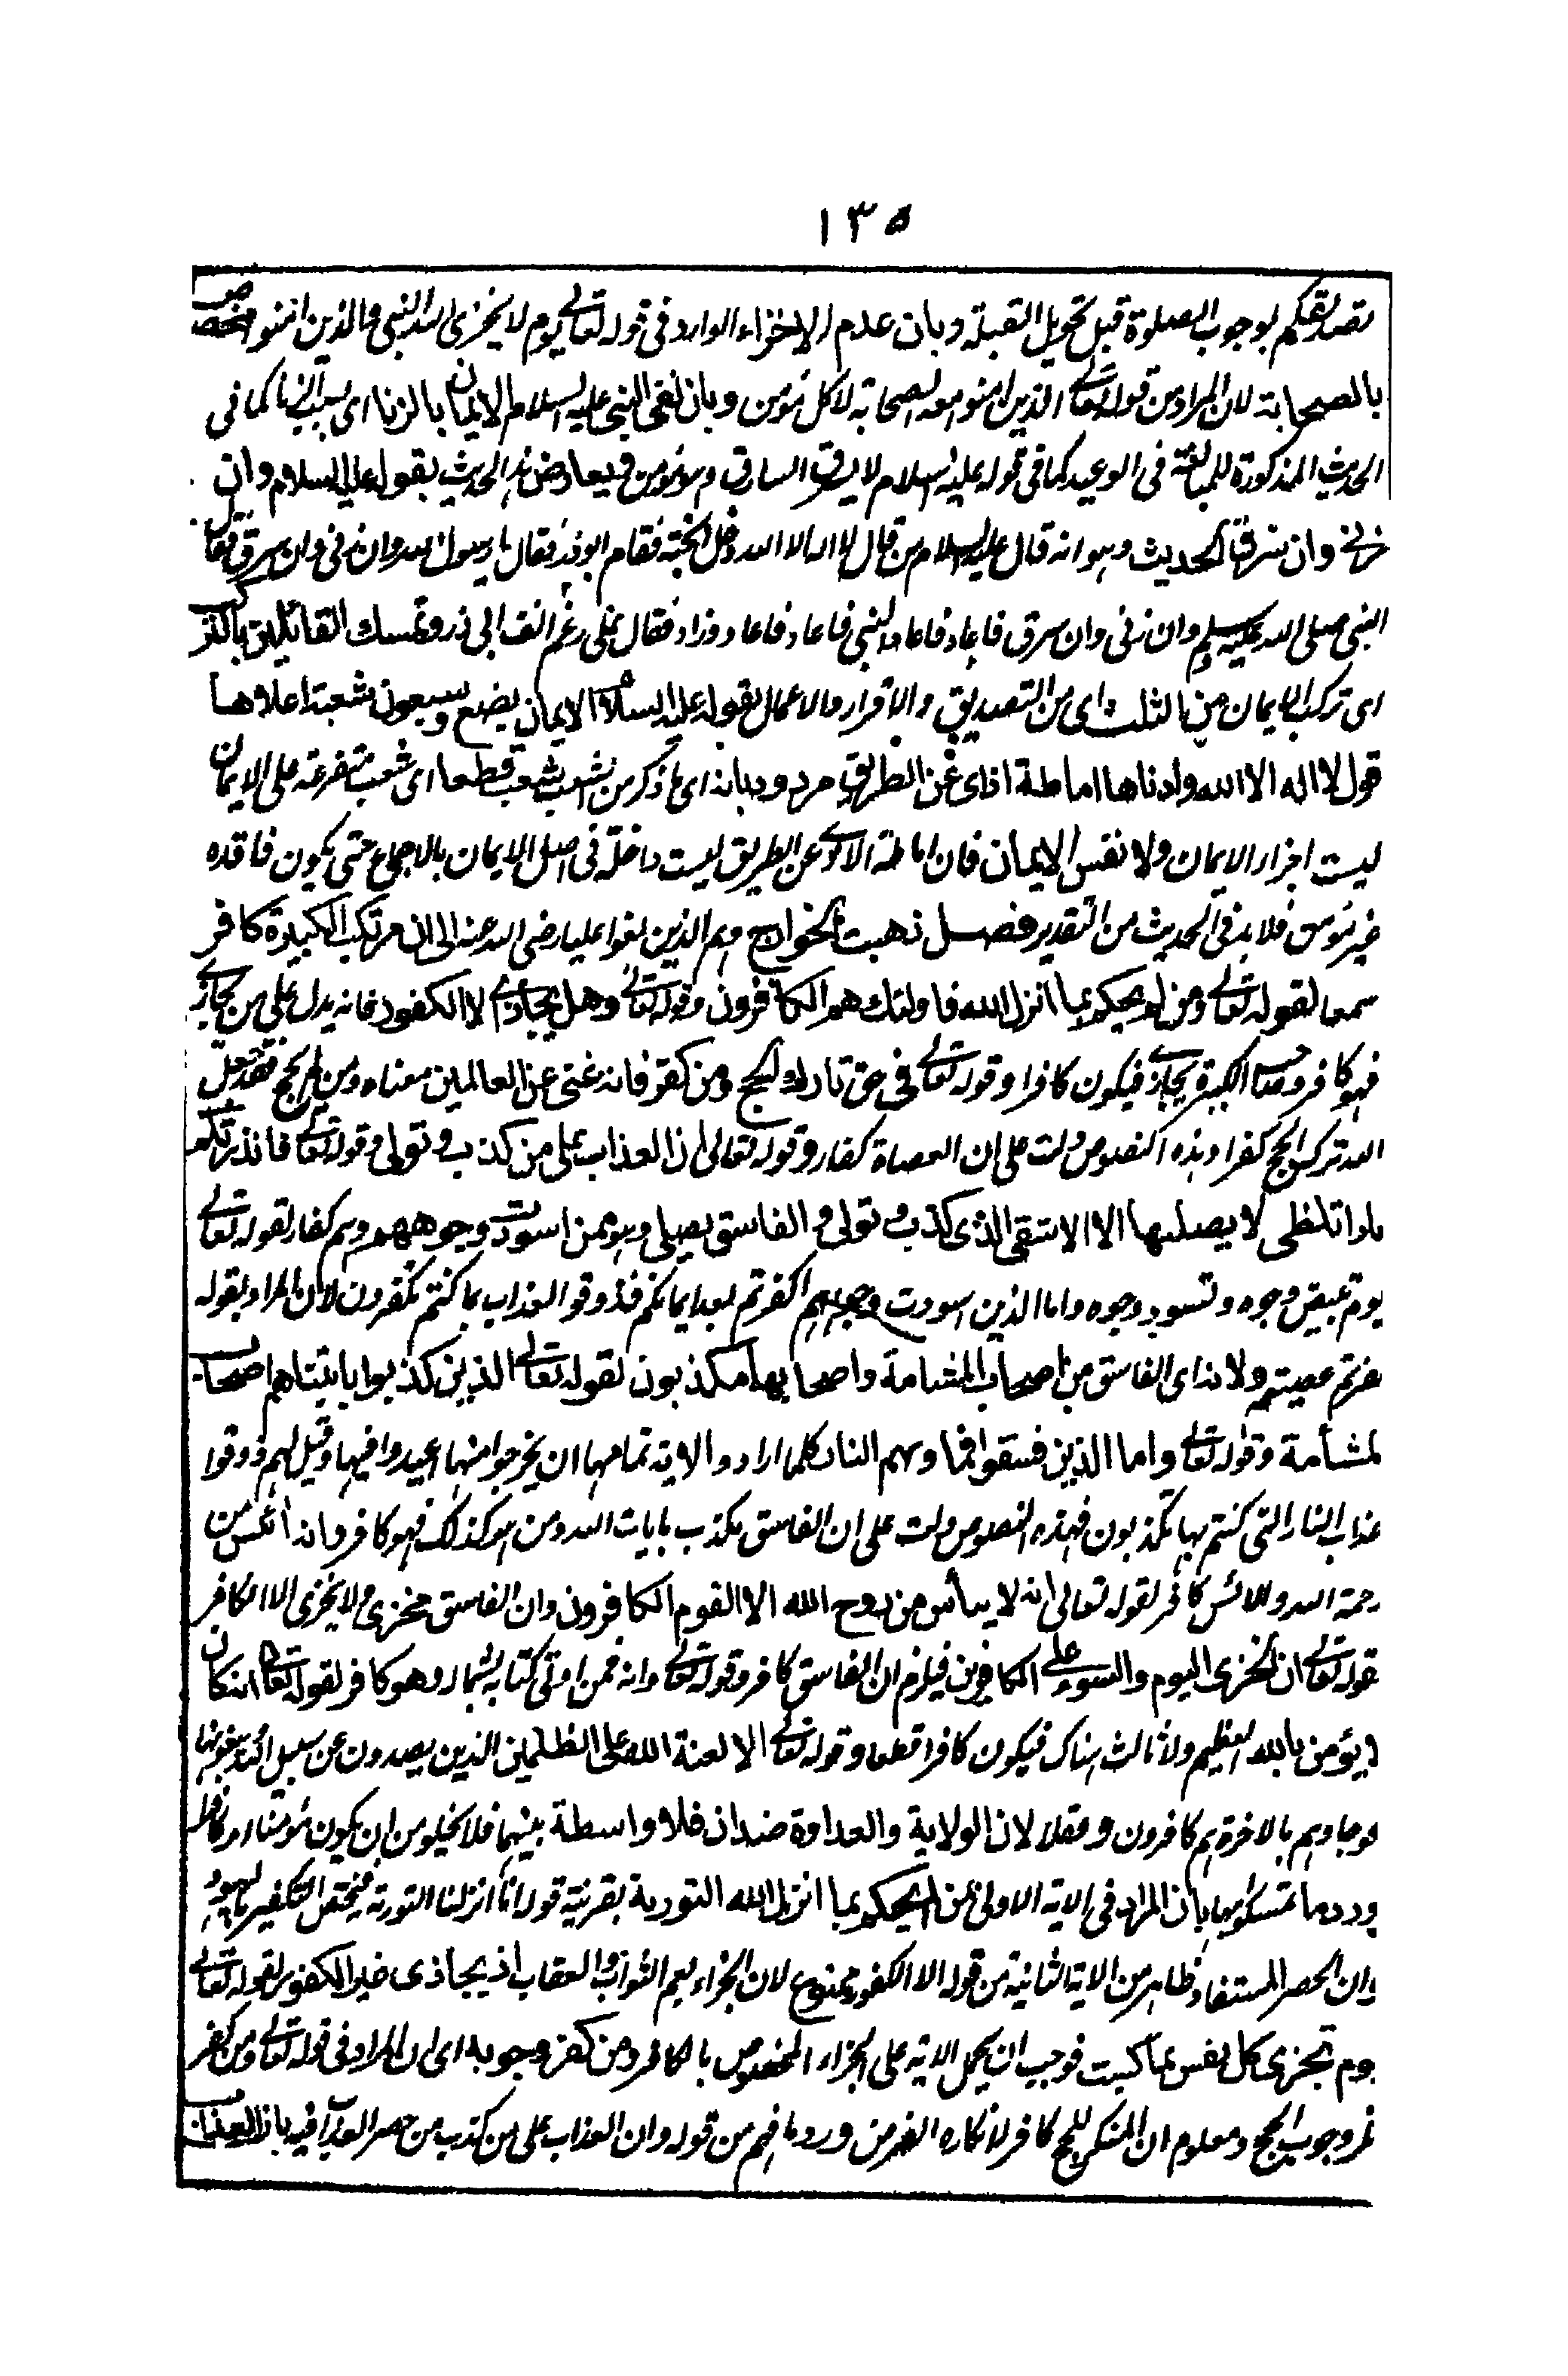 ١٣٥
تصديقكم بوجوب الصلوة قبل تحويل القبلة وبان عدم الاخزاء الوارد فى قوله تعالى يوم لا يخزى الله النبى والذين امنوا مختص
بالصحابة لان المراد من قوله تعالى الذين امنوا معه الصحابة لا كل مؤمن وبان نفى النبى عليه السلام الايمان بالزنا اى بسبب الزنا كما فى
الحديث المذكورة للمبالغة فى الوعيد كما فى قوله عليه السلام لا يسرق السارق وهو مؤمن فيعارض هذا الحديث بقوله عليه السلام وان
زنى وان سرق الحديث وهو انه قال عليه السلام من قال لا اله الا الله دخل الجنة فقام ابو ذر فقال يا رسول الله وان زنى وان سرق فقال
النبى صلى الله عليه وسلم وان زنى وان سرق فاعاد فاعاد النبى فاعاد فاعاد وزاد فقال على رغم انف ابى ذر وتمسك القائلين بالتركب
اى تركب الايمان من الثلث اى من التصديق والاقرار والاعمال بقوله عليه السلام الايمان بضع وسبعون شعبة اعلاها
قول لا اله الا الله وادناها اماطة اذى عن الطريق مردود بانه اى ما ذكر من الشعب شعب قطعا اى شعب متفرعة على الايمان
ليست اجزاء الايمان ولا نفس الايمان فان اماطة الاذى عن الطريق ليست داخلة فى اصل الايمان بالاجماع حتى يكون فاقده
غير مؤمن فلا بد فى الحديث من التقدير فصل ذهبت الخوارج وهم الذين بغوا عليا رضى الله عنه الى ان مرتكب الكبيرة كافر
سمعا لقوله تعالى ومن لم يحكم بما انزل الله فاولئك هم الكافرون وقوله تعالى وهل يجازى الا الكفور فانه يدل على من يجازى
فهو كافر وصاحب الكبيرة يجازى فيكون كافرا وقوله تعالى فى حق تارك الحج ومن كفر فانه غنى عن العالمين معناه ومن لم يحج فقد جعل
الله ترك الحج كفرا وهذه النصوص دلت على ان العصاة كفار وقوله تعالى ان العذاب على من كذب وتولى وقوله تعالى فانذرتكم
نارا تلظى لا يصلىها الا الاشقى الذى كذب وتولى والفاسق يصلى وهو ممن اسودت وجوههم وهم كفار لقوله تعالى
يوم تبيض وجوه وتسود وجوه واما الذين اسودت وجوههم اكفرتم بعد ايمانكم فذوقوا العذاب بما كنتم تكفرون لان المراد بقوله
كفرتم عصيتم ولانه اى الفاسق من اصحاب المشامة واصحابها مكذبون لقوله تعالى الذين كذبوا باياتنا هم اصحاب
لمشأمة وقوله تعالى واما الذين فسقوا فماوىهم النار كلما ارادوا الاية تمامها ان يخرجوا منها اعيدوا فيها وقيل لهم ذوقوا
عذاب النار التى كنتم بها تكذبون فهذه النصوص دلت على ان الفاسق مكذب بايات الله ومن هو كذلك فهو كافر وانه ائس من
رحمة الله والائس كافر لقوله تعالى انه لا ييأس من روح الله الا القوم الكافرون وان الفاسق مخزى ولا يخزى الا الكافر
قوله تعالى ان الخزى اليوم والسوء على الكافرين فيلزم ان الفاسق كافر وقوله تعالى وانه فمن اوتى كتابه بشماله وهو كافر لقوله تعالى انه كان
لا يؤمن بالله العظيم ولا ثالث هناك فيكون كافرا قطعا وقوله تعالى الا لعنة الله على الظلمين الذين يصدون عن سبيل الله ويبغونها
عوجا وهم بالاخرة هم كافرون وعقلا لان الولاية والعداوة ضدان فلا واسطة بينهما فلا يخلو من ان يكون مؤمنا او كافرا
ورد ما تمسكوا بها بان المراد فى الاية الاولى من لم يحكم بما انزل الله التورية بقرينة قوله انا انزلنا التورية فيختص التكفير باليهود
وان الحصر المستفاد ظاهر من الاية الثانية من قوله الا الكفور ممنوع لان الجزاء يعم الثواب والعقاب اذ يجازى غير الكفور لقوله تعالى
يوم تجزى كل نفس بما كسبت فوجب ان يحمل الاية على الجزاء المخصوص بالكافر ومن كفر وجوبه اى ان المراد فى قوله تعالى ومن كفر
وجوب الحج ومعلوم ان المنكر للحج كافر لانكاره الفرض ورد ما فهم من قوله وان العذاب على من كذب من حصر العذاب فيه بان